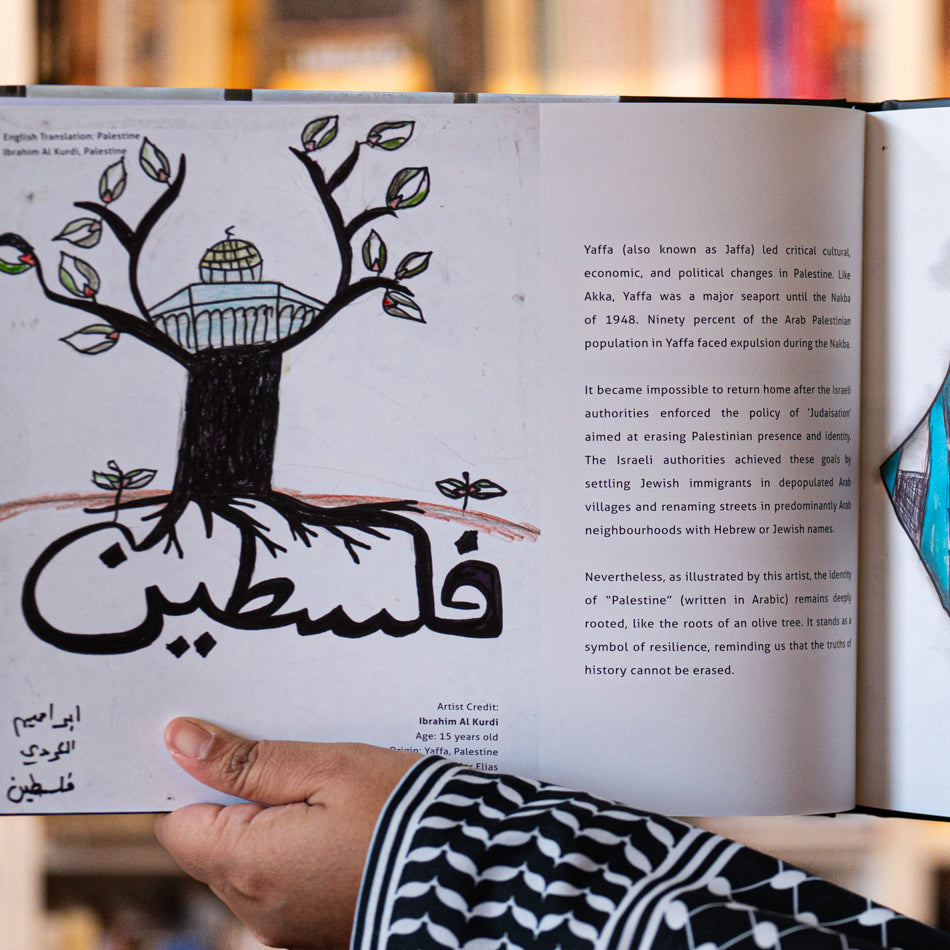 English Translation: Palestine
Ibrahim Al Kurdi, Palestine
فلسطين
ابراهيم
الكردي
فلسطين
Artist Credit:
Ibrahim Al Kurdi
Age: 15 years old
Origin: Yaffa, Palestine
Elias
Yaffa (also known as Jaffa) led critical cultural,
economic, and political changes in Palestine. Like
Akka, Yaffa was a major seaport until the Nakba
of 1948. Ninety percent of the Arab Palestinian
population in Yaffa faced expulsion during the Nakba.
It became impossible to return home after the Israeli
authorities enforced the policy of 'Judaisation'
aimed at erasing Palestinian presence and identity.
The Israeli authorities achieved these goals by
settling Jewish immigrants in depopulated Arab
villages and renaming streets in predominantly Arab
neighbourhoods with Hebrew or Jewish names.
Nevertheless, as illustrated by this artist, the identity
of “Palestine” (written in Arabic) remains deeply
rooted, like the roots of an olive tree. It stands as a
symbol of resilience, reminding us that the truths of
history cannot be erased.